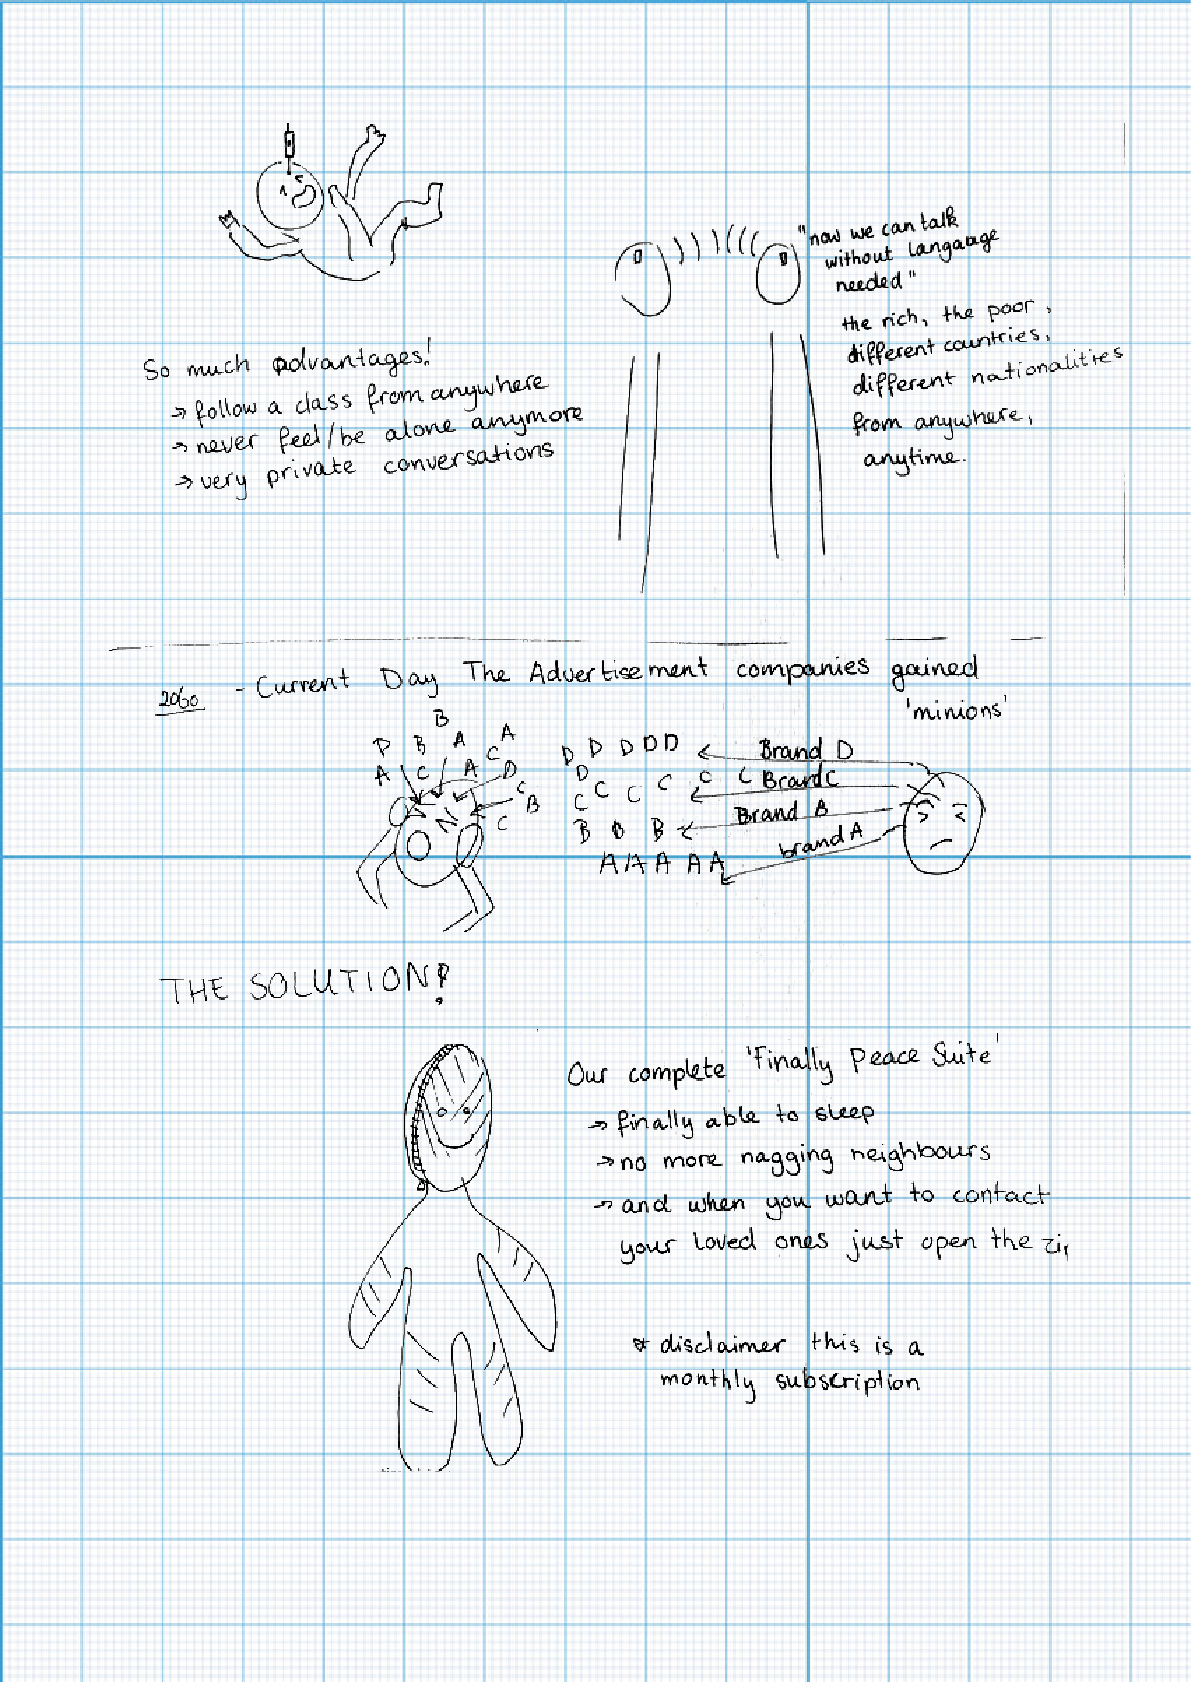 "now we can talk
without langauge
needed"
the rich, the poor,
different countries,
different nationalities
from anywhere,
anytime.
So much advantages!
→ follow a class from anywhere
→ never feel/be alone anymore
→ very private conversations
2060 - Current Day The Advertisement companies gained
'minions'
B
D B A C A
A C A D
C B
C
D D D D D
D
C C C C C C
B B B
A A A A A
Brand D
Brand C
Brand B
brand A
THE SOLUTION?!
Our complete 'Finally Peace Suite'
→ finally able to sleep
→ no more nagging neighbours
→ and when you want to contact
your loved ones just open the zi
* disclaimer this is a
monthly subscription